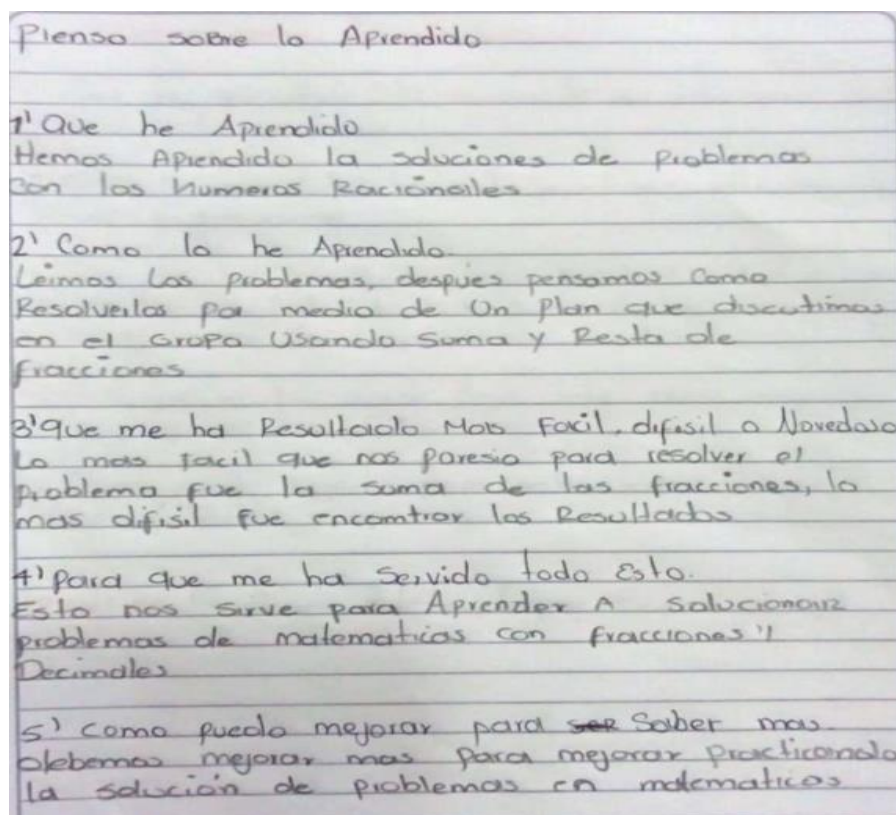 Pienso sobre lo Aprendido
1' Que he Aprendido
Hemos Aprendido la soluciones de problemas
con los numeros Racionales
2' Como lo he Aprendido.
Leimos Los problemas, despues pensamos Como
Resolverlos por medio de Un Plan que discutimos
en el Grupo Usando Suma y Resta de
fracciones
3' que me ha Resultado Mas Facil, difisil o Novedoso
Lo mas facil que nos paresio para resolver el
problema fue la suma de las fracciones, lo
mas difisil fue encomtrar los Resultados
4' para que me ha Servido todo Esto.
Esto nos sirve para Aprender A solucionar
problemas de matematicas con fracciones y
Decimales
5' como puedo mejorar para Saber mas
debemos mejorar mas para mejorar practicando
la solución de problemas en matematicas